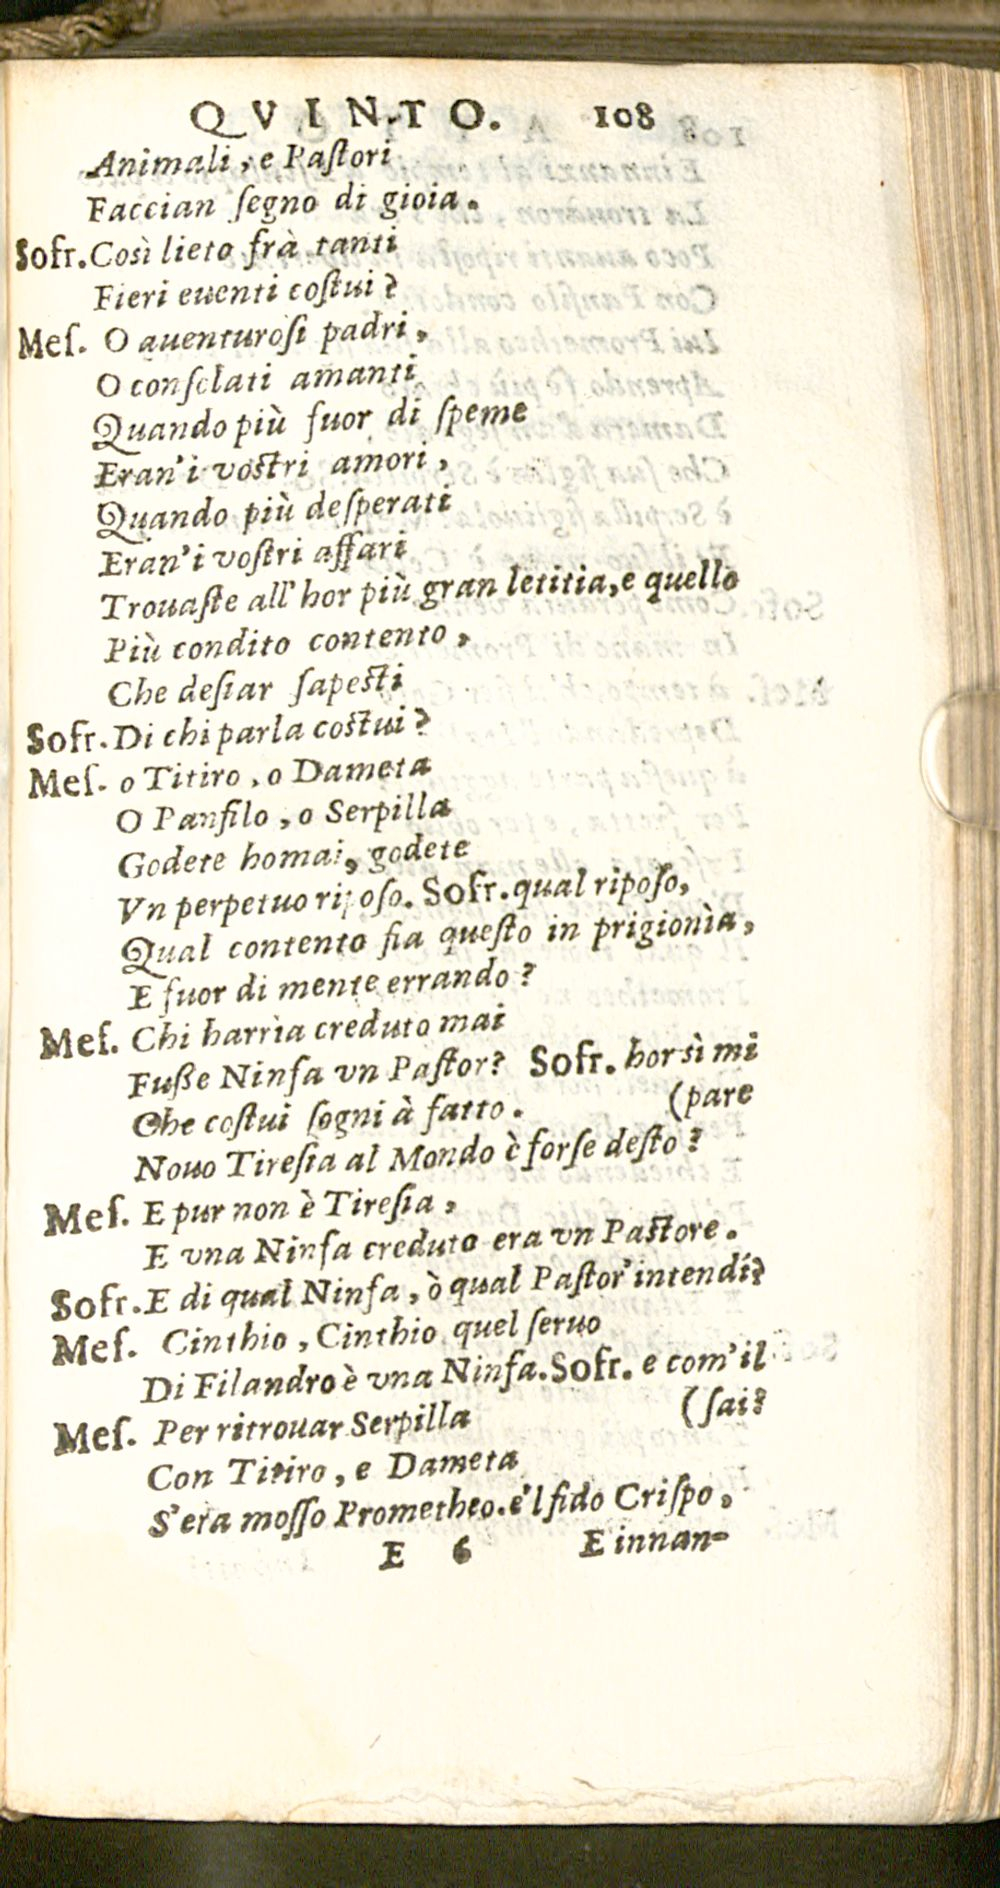 QVINTO. 108
Animali, e Paſtori
Faccian ſegno di gioia.
Sofr. Così lieto frà tanti
Fieri euenti coſtui?
Meſ. O auenturoſi padri,
O conſolati amanti
Quando più fuor di ſpeme
Eran' i voſtri amori,
Quando più deſperati
Eran' i voſtri affari
Trouaſte all' hor più gran letitia, e quello
Più condito contento,
Che deſiar ſapeſti
Sofr. Di chi parla coſtui?
Meſ. o Titiro, o Dameta
O Panfilo, o Serpilla
Godete homai, godete
Vn perpetuo ripoſo. Sofr. qual ripoſo,
Qual contento fia queſto in prigionìa,
E fuor di mente errando?
Meſ. Chi harrìa creduto mai
Fuße Ninfa vn Paſtor? Sofr. hor sì mi
(pare
Che coſtui ſogni à fatto.
Nouo Tireſia al Mondo è forſe deſto?
Meſ. E pur non è Tireſia,
E vna Ninfa creduto era vn Paſtore.
Sofr. E di qual Ninfa, ò qual Paſtor' intendi?
Meſ. Cinthio, Cinthio quel ſeruo
Di Filandro è vna Ninfa. Sofr. e com' il
(ſai?
Meſ. Per ritrouar Serpilla
Con Titiro, e Dameta
S'era moſſo Prometheo. e'l fido Criſpo,
E 6 E innan-